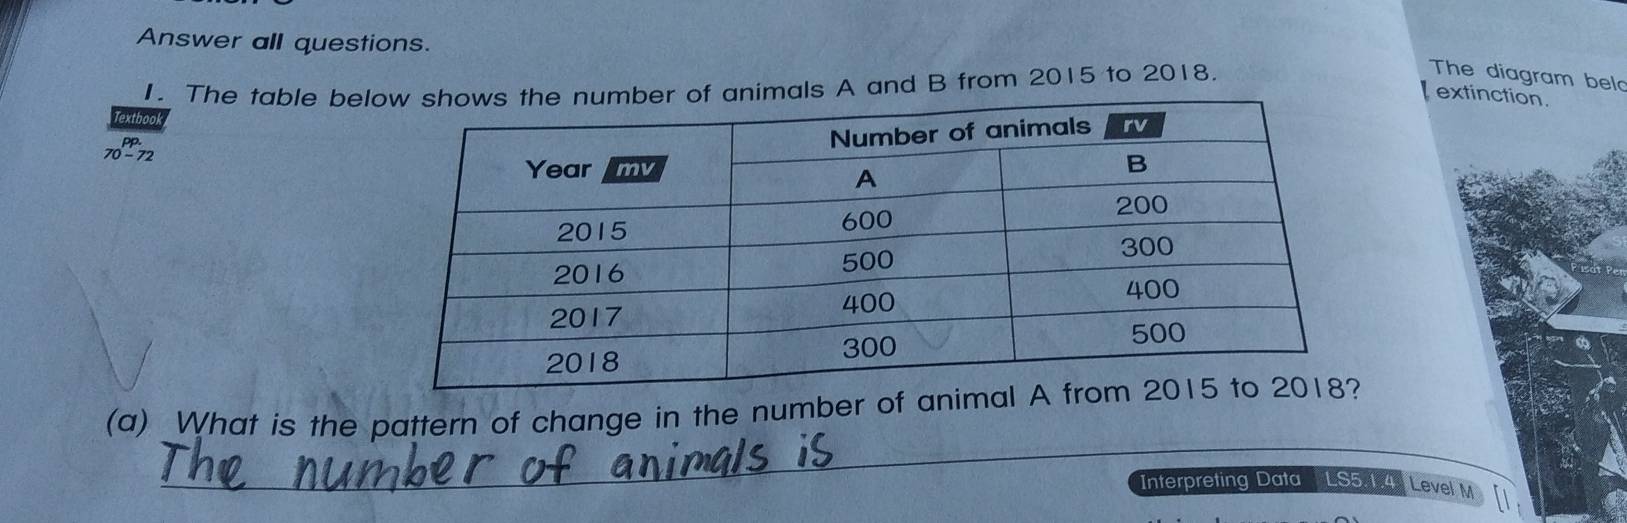 Answer all questions.
1. The table below shows the number of animals A and B from 2015 to 2018.
Textbook
pp.
70-72
Year mv
Number of animals rv
A
B
2015 600 200
2016 500 300
2017 400 400
2018 300 500
(a) What is the pattern of change in the number of animal A from 2015 to 2018?
The number of animals is
Interpreting Data LS5.1.4 Level M
The diagram
extinction.